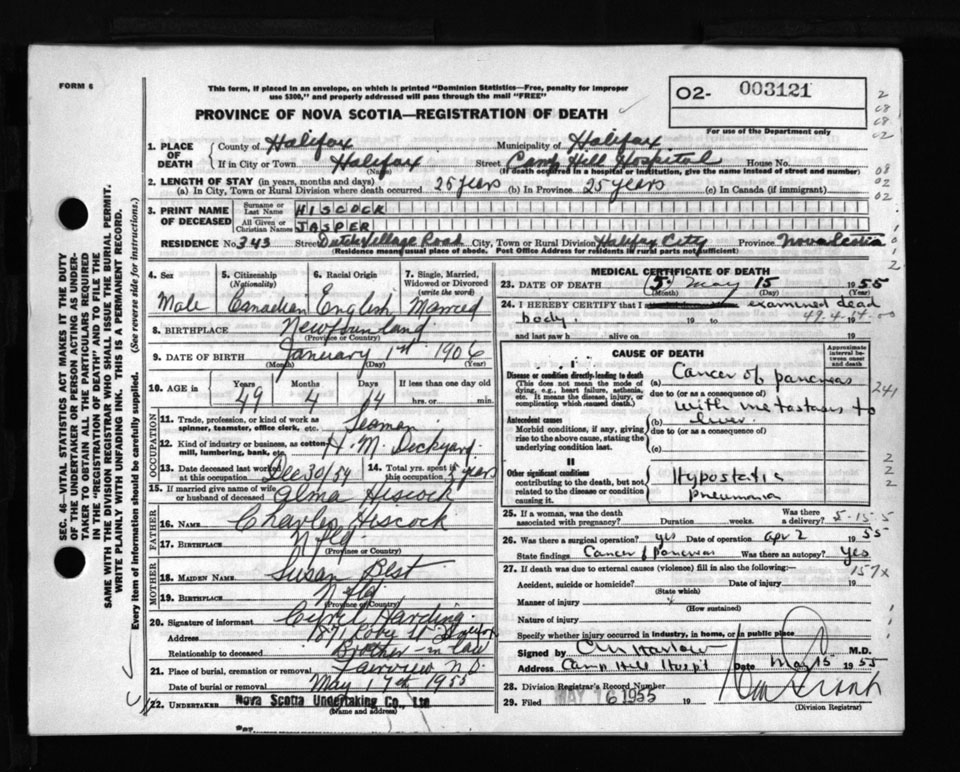 FORM 6
This form, if placed in an envelope, on which is printed "Dominion Statistics—Free, penalty for improper
use $300," and properly addressed will pass through the mail "FREE"
O2- 003121
For use of the Department only
PROVINCE OF NOVA SCOTIA—REGISTRATION OF DEATH
1. PLACE OF DEATH
County of Halifax Municipality of Halifax
If in City or Town Halifax Street Camp Hill Hospital House No.
(Name) (If death occurred in a hospital or institution, give the name instead of street and number)
2. LENGTH OF STAY (in years, months and days)
(a) In City, Town or Rural Division where death occurred 25 years (b) In Province 25 years (c) In Canada (if immigrant)
3. PRINT NAME OF DECEASED
Surname or Last Name HISCOCK
All Given or Christian Names JASPER
RESIDENCE No. 343 Street Dutch Village Road City, Town or Rural Division Halifax City Province Nova Scotia
Residence means usual place of abode. Post Office Address for residents in rural parts not sufficient)
SEC. 46—VITAL STATISTICS ACT MAKES IT THE DUTY
OF THE UNDERTAKER OR PERSON ACTING AS UNDER-
TAKER TO OBTAIN ALL THE PARTICULARS REQUIRED
IN THE "REGISTRATION OF DEATH" AND TO FILE THE
SAME WITH THE DIVISION REGISTRAR WHO SHALL ISSUE THE BURIAL PERMIT.
WRITE PLAINLY WITH UNFADING INK. THIS IS A PERMANENT RECORD.
Every item of information should be carefully supplied. (See reverse side for instructions.)
4. Sex 5. Citizenship (Nationality) 6. Racial Origin 7. Single, Married, Widowed or Divorced (write the word)
Male Canadian English Married
8. BIRTHPLACE Newfoundland
(Province or Country)
9. DATE OF BIRTH January 1st 1906
(Month) (Day) (Year)
10. AGE in Years Months Days If less than one day old
49 4 14 hrs. or min.
OCCUPATION
11. Trade, profession, or kind of work as spinner, teamster, office clerk, etc. Seaman
12. Kind of industry or business, as cotton mill, lumbering, bank, etc. H. M. Dockyard
13. Date deceased last worked at this occupation Dec 30/54 14. Total yrs. spent in this occupation years
15. If married give name of wife or husband of deceased Alma Hiscock
FATHER
16. NAME Charles Hiscock
17. BIRTHPLACE Nfld
(Province or Country)
MOTHER
18. MAIDEN NAME Susan Best
19. BIRTHPLACE Nfld
(Province or Country)
20. Signature of informant Cyril Harding
Address 187 St
Relationship to deceased Brother-in-law
21. Place of burial, cremation or removal Fairview N.S.
Date of burial or removal May 17th 1955
22. UNDERTAKER Nova Scotia Undertaking Co., Ltd.
(Name and address)
MEDICAL CERTIFICATE OF DEATH
23. DATE OF DEATH (5) May 15 1955
(Month) (Day)
24. I HEREBY CERTIFY that I examined dead
body. 19 to 19
and last saw h alive on 19
CAUSE OF DEATH
Approximate interval between onset and death
I
Disease or condition directly leading to death
(This does not mean the mode of dying, e.g., heart failure, asthenia, etc. It means the disease, injury, or complication which caused death.)
(a) Cancer of pancreas
due to (or as a consequence of)
Antecedent causes
Morbid conditions, if any, giving rise to the above cause, stating the underlying condition last.
with metastases to
(b) liver
due to (or as a consequence of)
(c)
II
Other significant conditions
contributing to the death, but not related to the disease or condition causing it.
Hypostatic
Pneumonia
25. If a woman, was the death associated with pregnancy? Duration weeks. Was there a delivery?
26. Was there a surgical operation? yes Date of operation Apr 2 1955
State findings Cancer pancreas Was there an autopsy? Yes
27. If death was due to external causes (violence) fill in also the following:—
157x
Accident, suicide or homicide? Date of injury 19
(State which)
Manner of injury
(How sustained)
Nature of injury
Specify whether injury occurred in industry, in home, or in public place
Signed by M.D.
Address Camp Hill Hosp't Date May 15 1955
28. Division Registrar's Record Number
29. Filed MAY 16 1955 19
(Division Registrar)